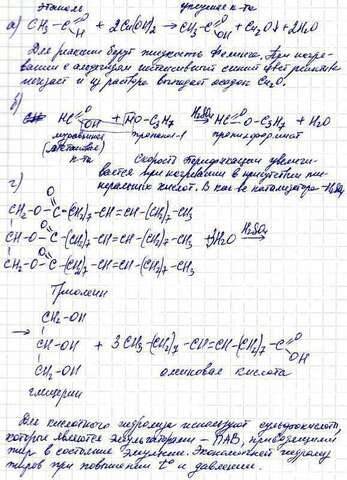 этаналь уксусная к-та
а) CH₃-C=O H + 2Cu(OH)₂ → CH₃-C=O OH + Cu₂O↓ + 2H₂O
Для реакции берут жидкость Фелинга. При нагре-
вании с альдегидом интенсивный синий цвет реактива
исчезает и из раствора выпадает осадок Cu₂O.
б)
HC=O OH + HO-C₃H₇ H₂SO₄→ HC=O O-C₃H₇ + H₂O
муравьиная пропанол-1 пропилформиат
(метановая)
к-та Скорость этерификации увеличи-
вается при нагревании в присутствии ми-
неральных кислот. В кач-ве катализатора - H₂SO₄
г)
CH₂-O-C(=O)-(CH₂)₇-CH=CH-(CH₂)₇-CH₃
CH-O-C(=O)-(CH₂)₇-CH=CH-(CH₂)₇-CH₃ + 3H₂O H₂SO₄→
CH₂-O-C(=O)-(CH₂)₇-CH=CH-(CH₂)₇-CH₃
Триолеин
CH₂-OH
→ CH-OH + 3CH₃-(CH₂)₇-CH=CH-(CH₂)₇-C=O OH
CH₂-OH олеиновая кислота
глицерин
Для кислотного гидролиза используют сульфокислоты,
которые являются эмульгаторами - ПАВ, приводящими
жир в состояние эмульсии. Экономичней гидролиз
жиров при повышении t° и давлении.